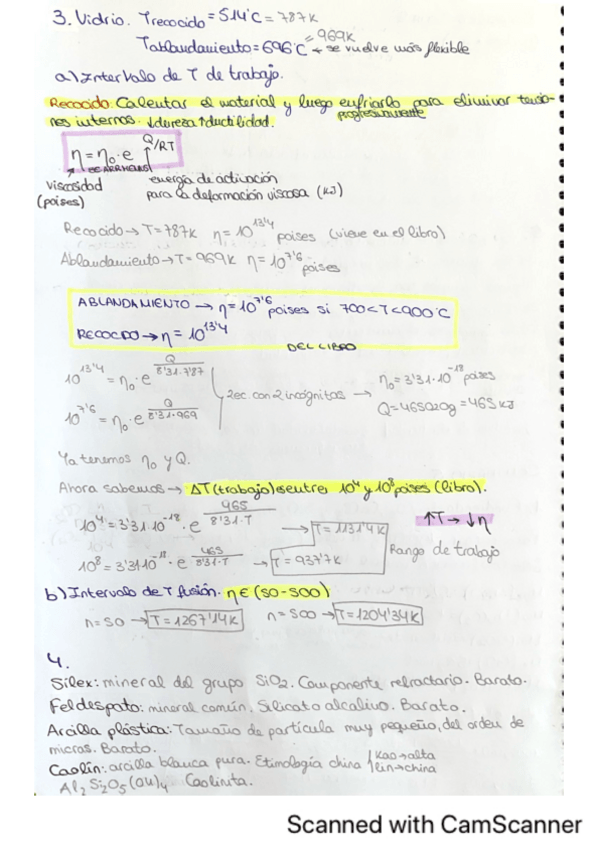 3. Vidrio. Trecocido = 514°C = 787K
Tablandamiento = 696°C = 969K → se vuelve más flexible
a) Intervalo de T de trabajo.
Recocido. Calentar el material y luego enfriarlo progresivamente para eliminar tensio-
nes internas. ↓dureza ↑ductilidad.
η = η₀ · e^Q/RT
EC ARRHENIUS
viscosidad (poises)
energía de activación
para la deformación viscosa (KJ)
Recocido → T=787K η = 10^13'4 poises (viene en el libro)
Ablandamiento → T=969K η = 10^7'6 poises
ABLANDAMIENTO → η = 10^7'6 poises si 700<T<900°C
RECOCIDO → η = 10^13'4
DEL LIBRO
10^13'4 = η₀ · e^Q/8'31·787
10^7'6 = η₀ · e^Q/8'31·969
2ec. con 2 incógnitas →
η₀ = 3'31·10^-18 poises
Q = 465020J = 465 KJ
Ya tenemos η₀ y Q.
Ahora sabemos → ΔT (trabajo) ∈ entre 10⁴ y 10⁸ poises (libro).
10⁴ = 3'31·10^-18 · e^465/8'31·T → T = 1131'4K
↑T → ↓η
10⁸ = 3'31·10^-18 · e^465/8'31·T → T = 937'7K
Rango de trabajo
b) Intervalo de T fusión. η ∈ (50-500)
η=50 → T=1267'14K η=500 → T=1204'34K
4.
Sílex: mineral del grupo SiO₂. Componente refractario. Barato.
Feldespato: mineral común. Silicato alcalino. Barato.
Arcilla plástica: Tamaño de partícula muy pequeño, del orden de
micras. Barato.
Caolín: arcilla blanca pura. Etimología china { Kao → alta
lin → china
Al₂Si₂O₅(OH)₄ Caolinita.
Scanned with CamScanner